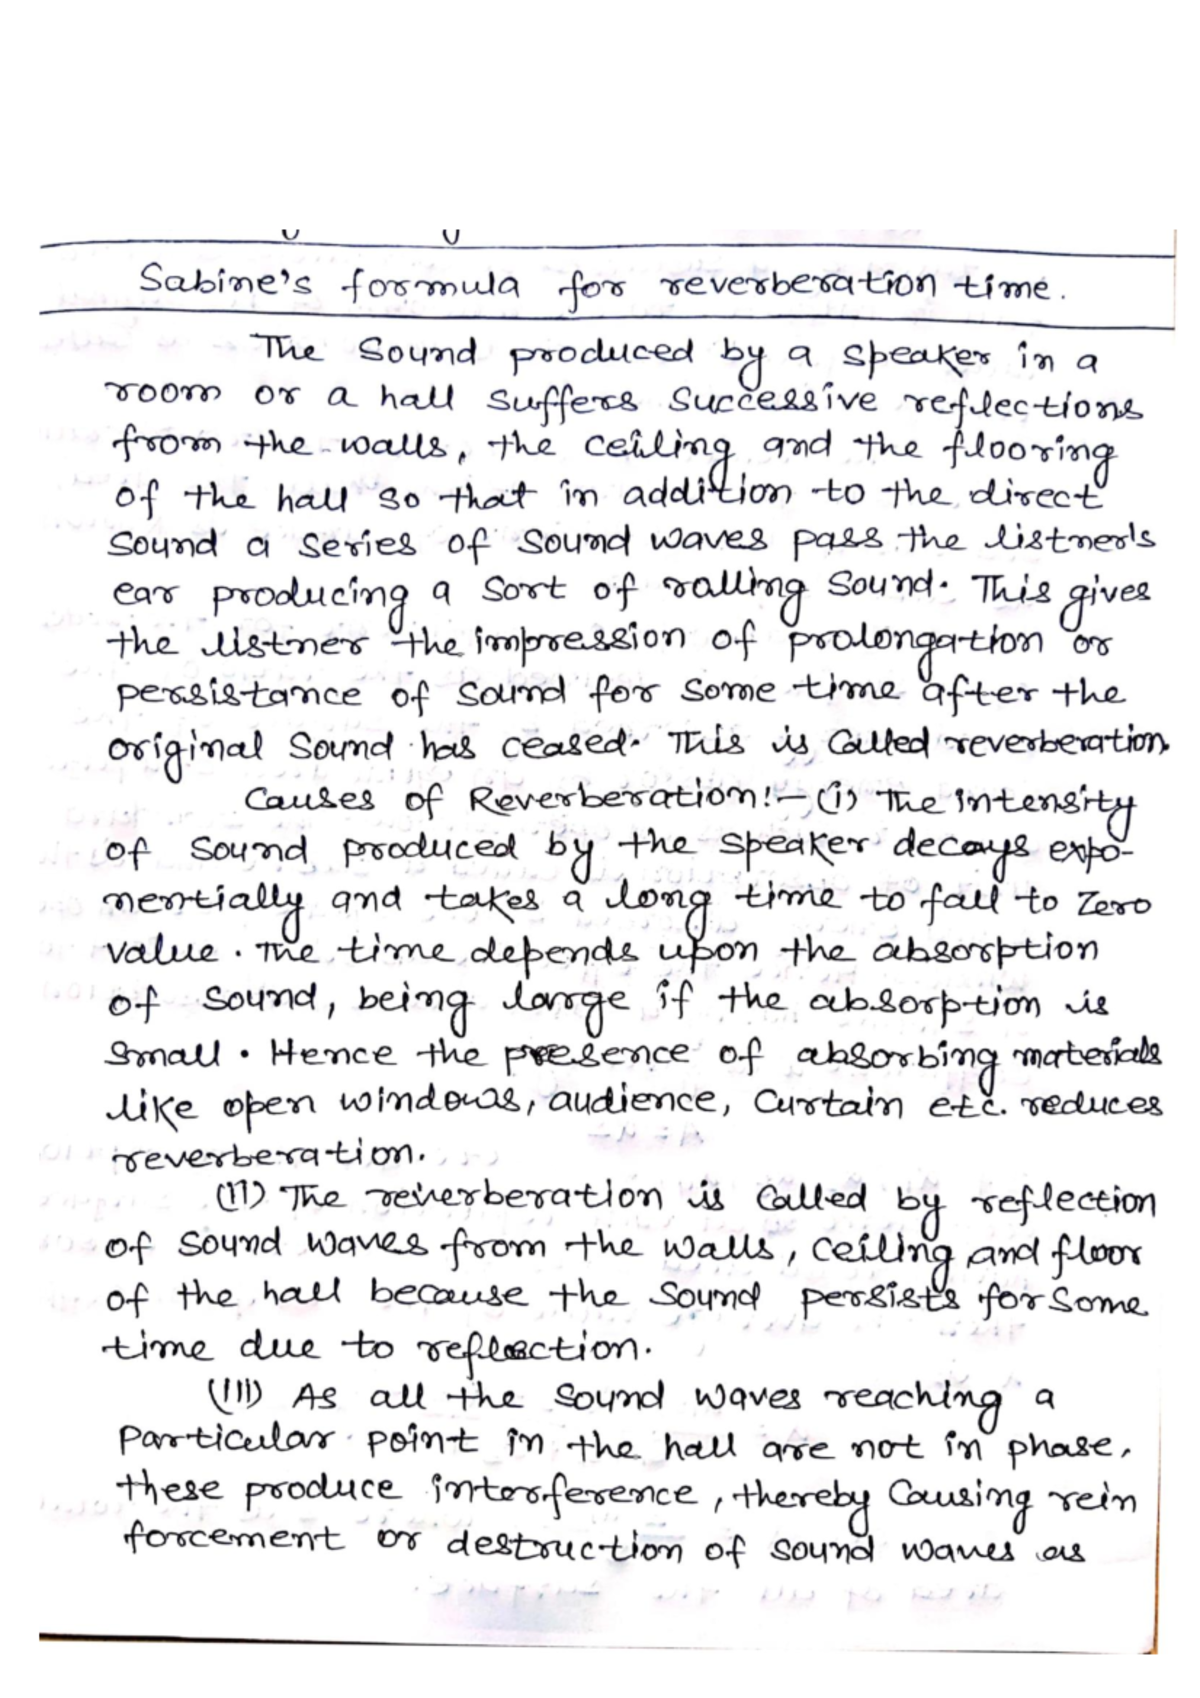 Sabine's formula for reverberation time.
The Sound produced by a speaker in a
room or a hall suffers successive reflections
from the walls, the ceiling and the flooring
of the hall so that in addition to the direct
sound a series of sound waves pass the listner's
ear producing a sort of ralling sound. This gives
the listner the impression of prolongation or
persistance of sound for some time after the
original sound has ceased. This is called reverberation.
Causes of Reverberation:- (i) The intensity
of sound produced by the speaker decays expo-
nentially and takes a long time to fall to zero
value. The time depends upon the absorption
of sound, being large if the absorption is
small. Hence the presence of absorbing materials
like open windows, audience, curtain etc. reduces
reverberation.
(II) The reverberation is called by reflection
of sound waves from the walls, ceiling and floor
of the hall because the sound persists for some
time due to reflection.
(III) As all the sound waves reaching a
particular point in the hall are not in phase,
these produce interference, thereby causing rein
forcement or destruction of sound waves as